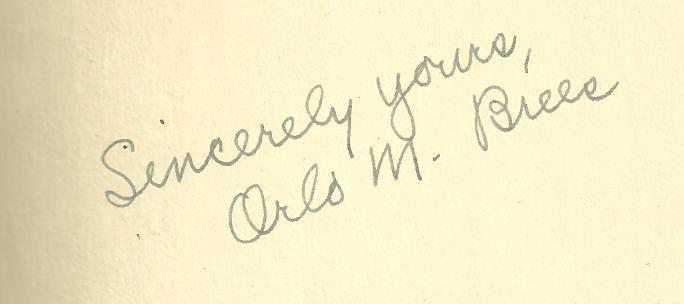 Sincerely yours,
Orlo M. Brees